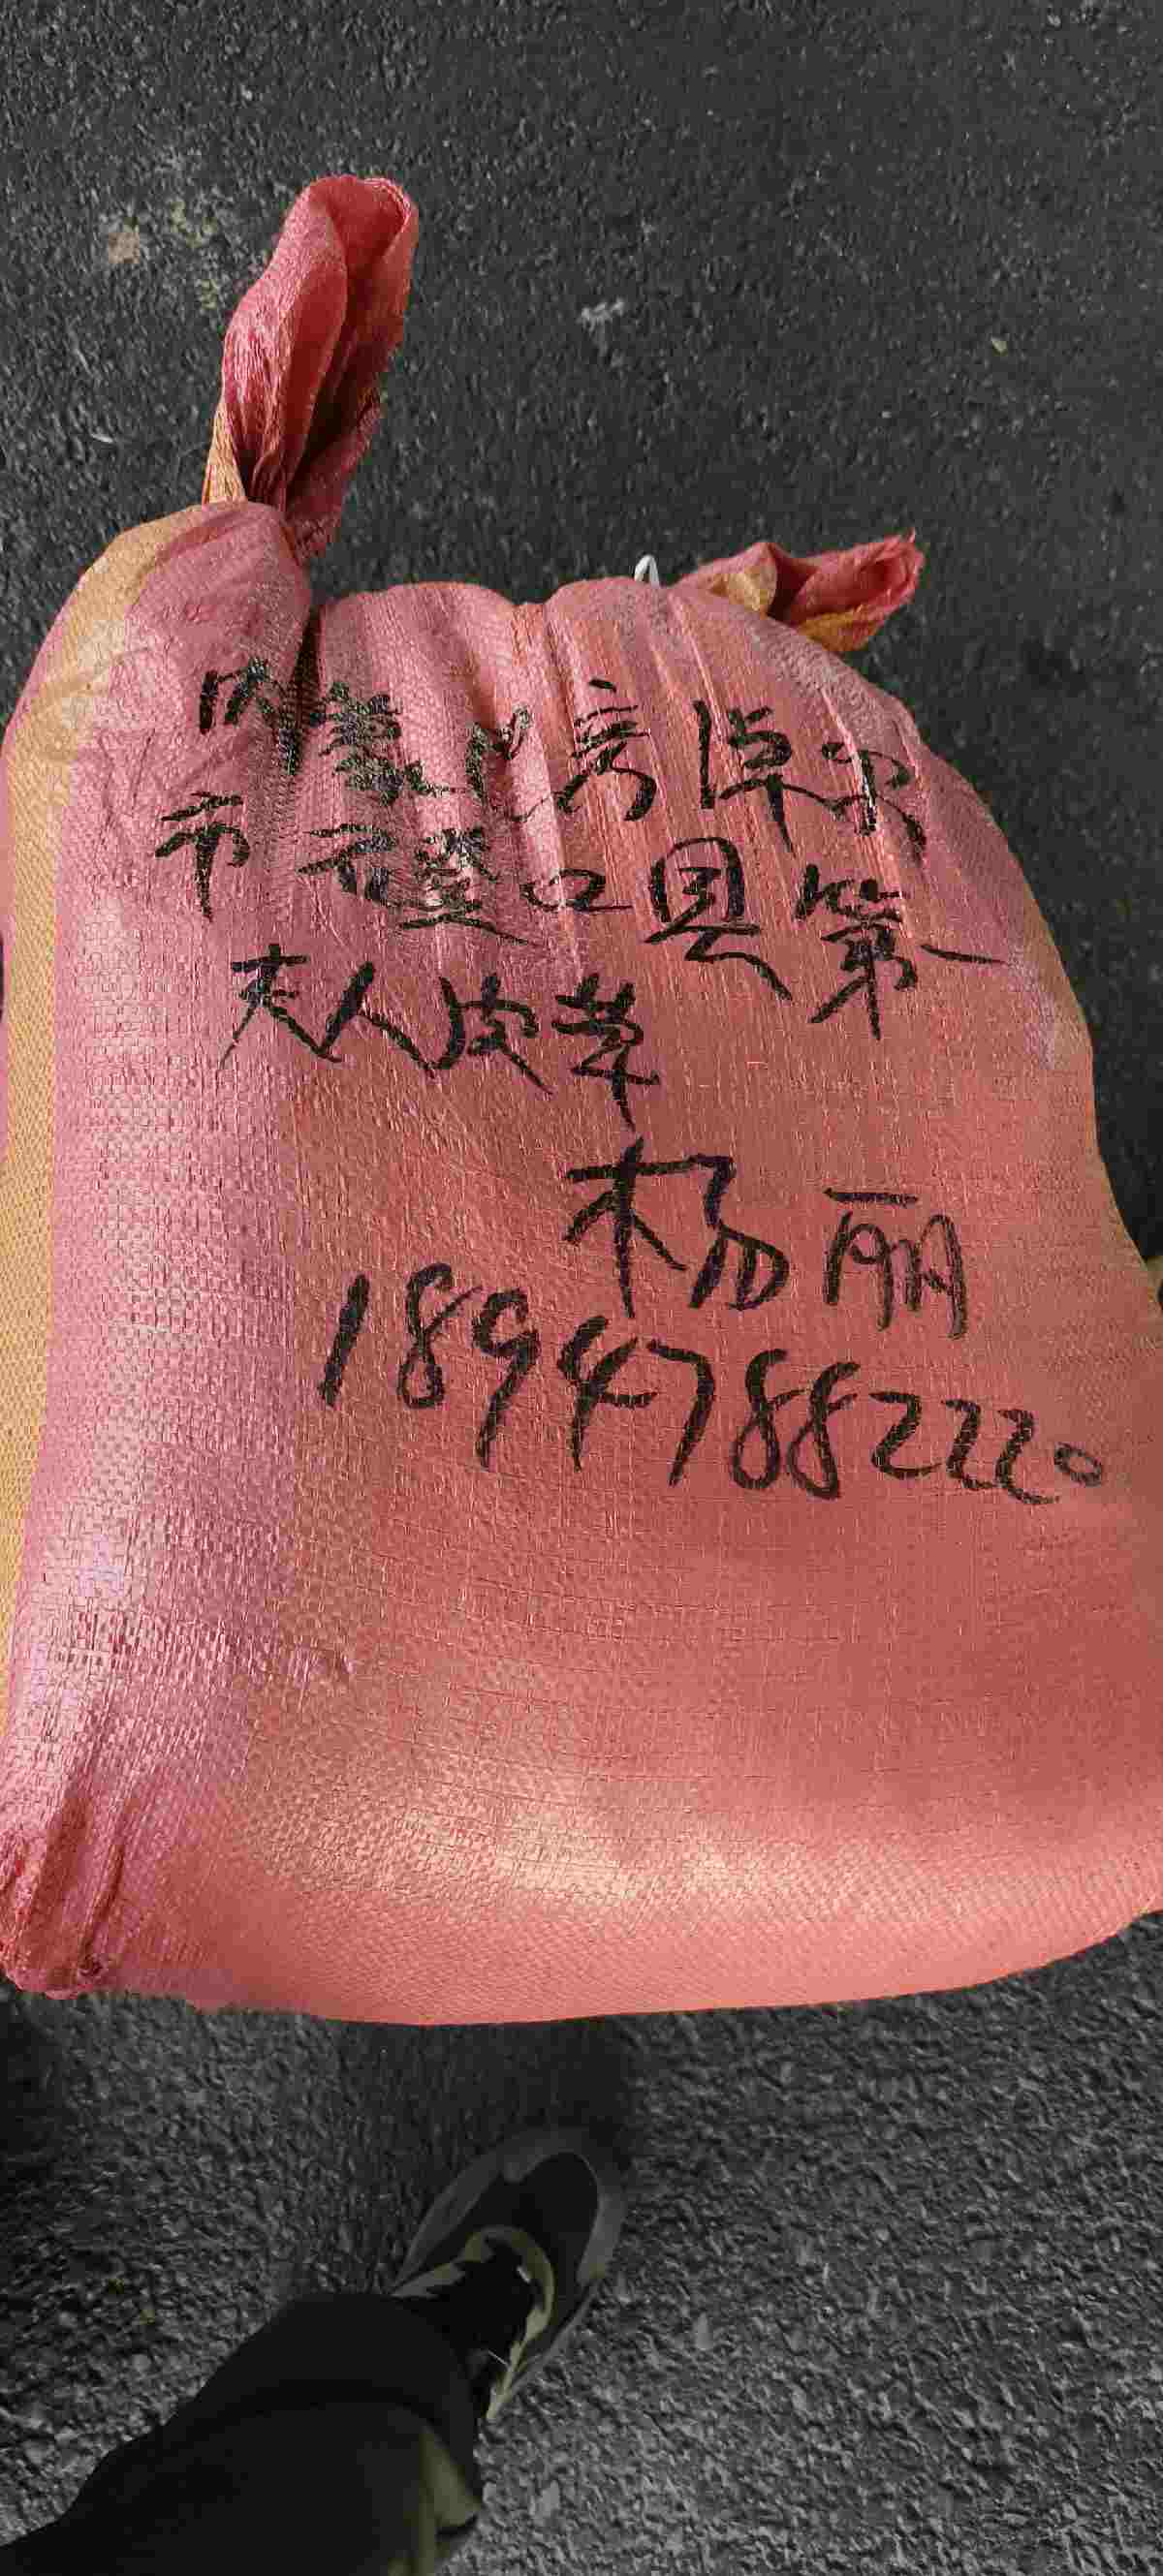 内蒙巴彦淖尔
市磴口县第一
夫人皮草
杨丽
18947882220